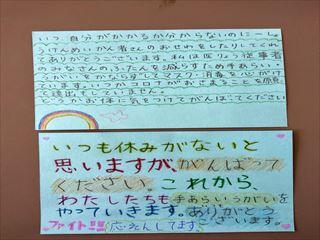 いつ自分がかかるか分からないのに一しょ
うけんめいかん者さんのおせわをしたりしてくれ
てありがとうございます。私は医りょう従事者
のみなさんのふたんを減らすため手あらい・
うがいをかならずしてマスク・消毒を心がけ
ています。いつかコロナがおさまることを願っ
て
どうかお体に気をつけてがんばってください
いつも休みがないと
思いますが、がんばって
ください。これから、
わたしたちも手あらいうがいを
やっていきます。ありがとう
ございます。
ファイト!!! 応えんしてます